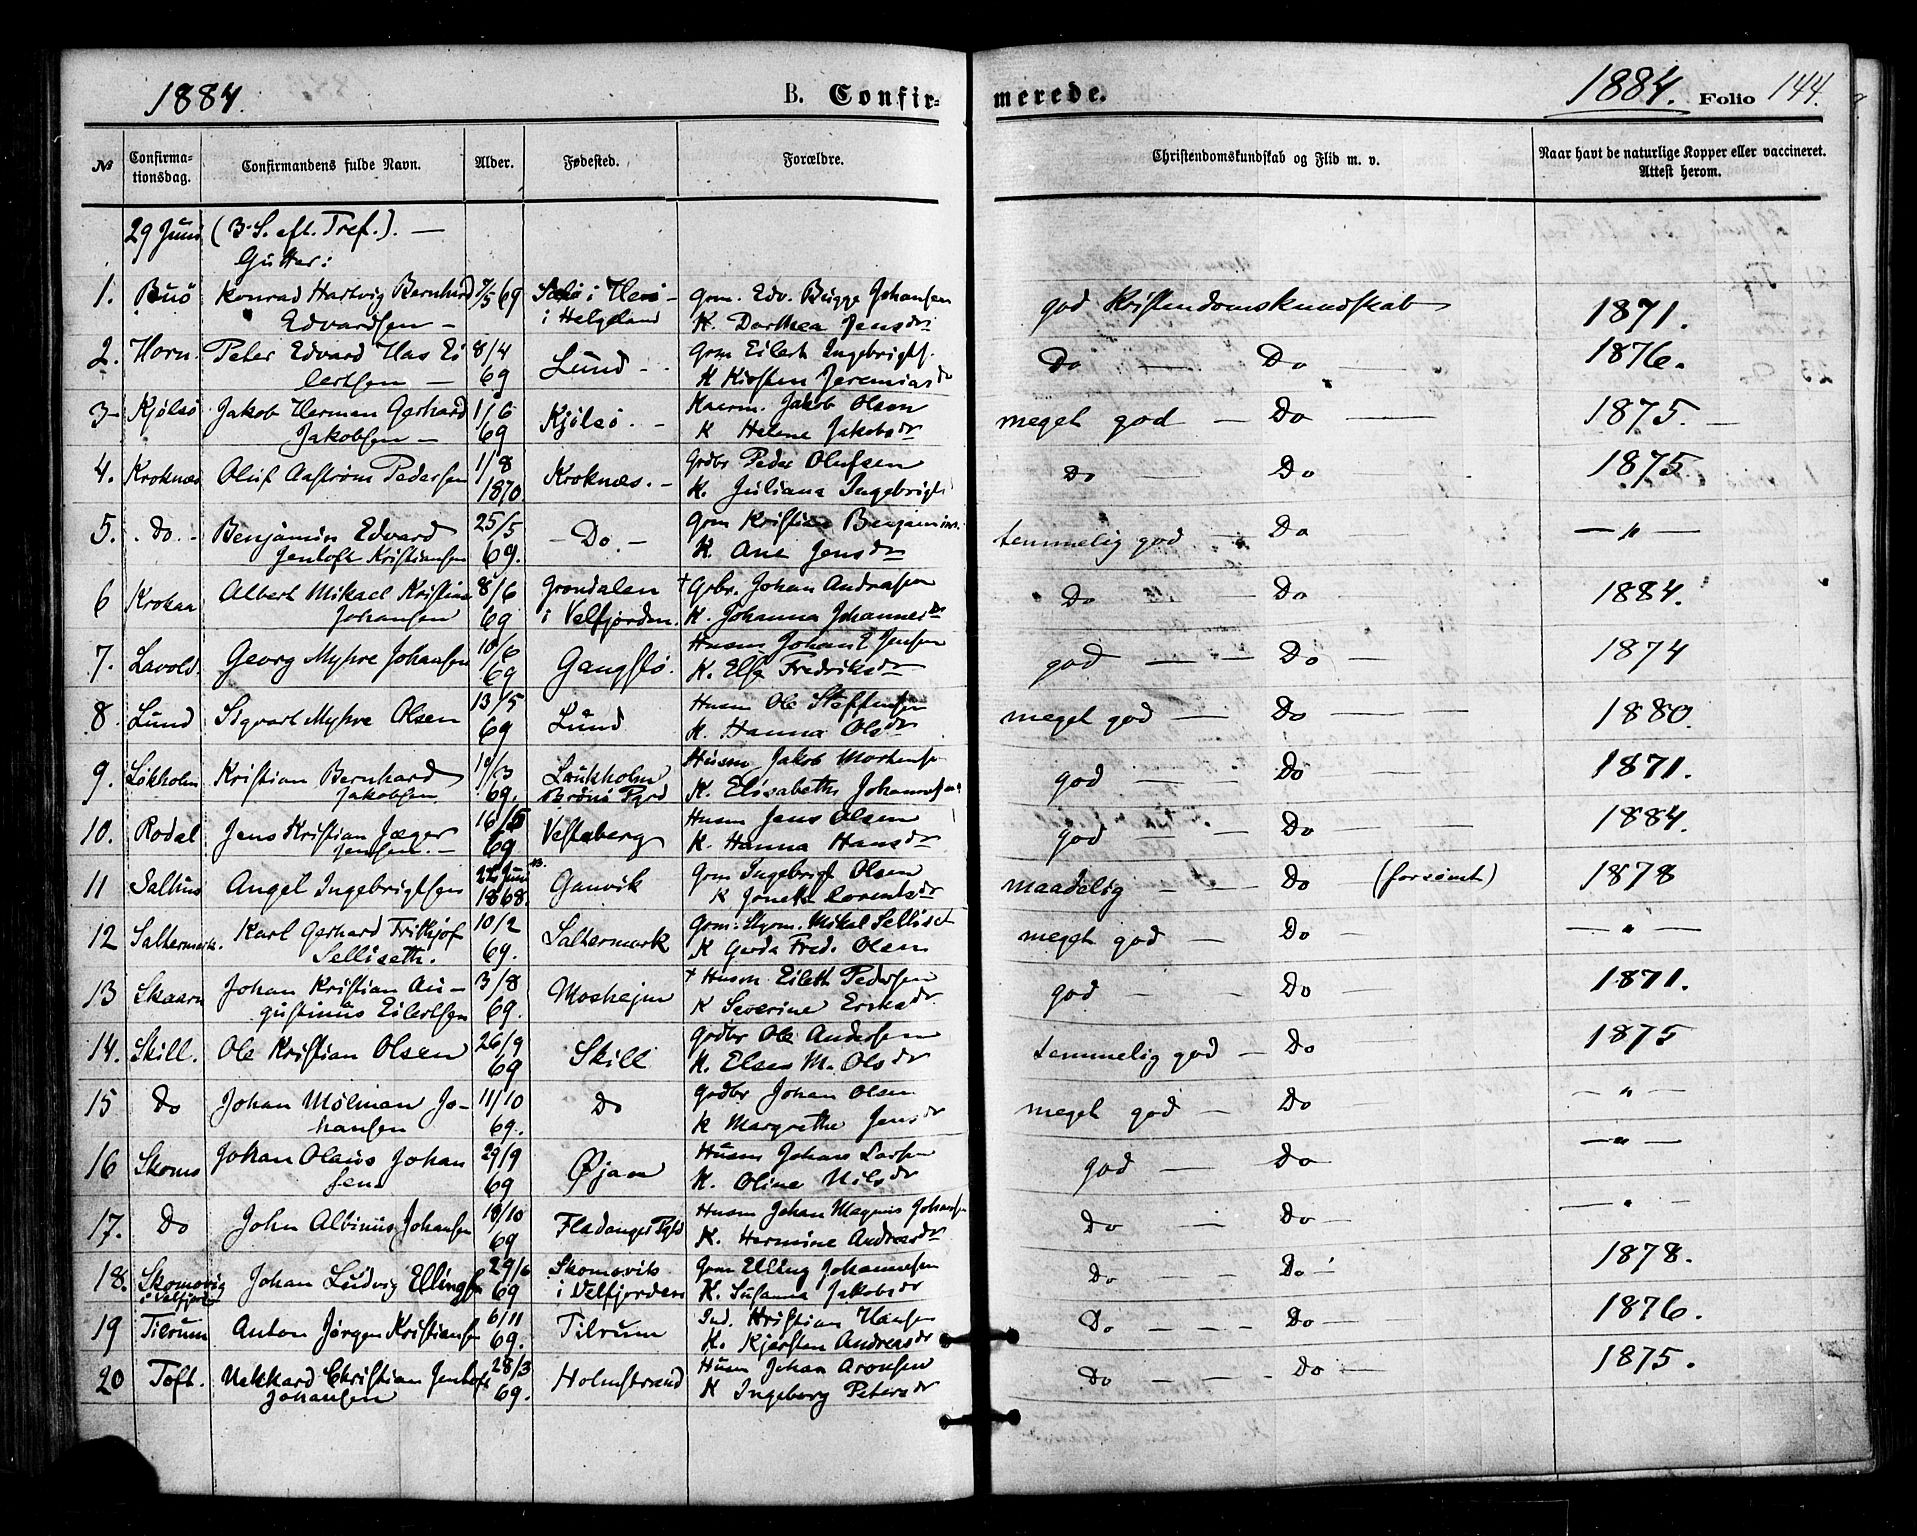 1884.
B. Confirmerede.
1884. Folio 144.
№ Confirmationsdag. Confirmandens fulde Navn. Alder. Fødested. Forældre. Christendomskundskab og Flid m. v. Naar havt de naturlige Kopper eller vaccineret. Attest herom.
29 Juni (3. S. eft. Tref.). —
Gutter:
1. Buö Konrad Hartvig Bernhard 7/5 69 i Herö - Grm. Edv. Bugge Johansen god Kristendomskundskab 1871.
Edvardsen — i Helgeland K. Dorthea Jensdr
2. Horn. Peter Edvard Has Ei 8/4 Lund - Grm Eilert Ingebrigts. Do — Do — 1876.
lertsen — 69 K Kirsten Jeremiasdr
3- Kjölsö Jakob Herman Gerhard 1/6 Kjölsö. - Jakob Olsen meget god — Do — 1875. —
Jakobsen — 69 K Helene Jakobsdr
4. Kroknæs Oluf Aastrøm Pedersen 1/8 Kroknæs. - Grdbr Peder Olufsen Do — Do — 1875
1870. K. Juliana Ingebrigts
5. . Do. - Benjamin Edvard 25/5 - Do. - Grm Kristian Benjamins. temmelig god — Do — " —
Jentoft Kristiansen 69. K. Ane Jensdr
6 Krokaa Albert Mikael Kristian 8/6 Grøndalen † Grbr. Johan Andreasen Do — Do — 1884.
Johansen 69 i Velfjorden. K. Johanna Johannesdr
7. Lavold. Georg Myhre Johansen 10/6 Gangstö. Husm Johan E Jensen god — — Do — 1874
69 K. Else Fredriksdr
8. Lund Sigvart Myhre Olsen 13/5 Lund Husm Ole Steffensen meget god — Do — — 1880.
69 K. Hanna Olsdr
9. Lökholm Kristian Bernhard 19/3 Laukholm Husm Jakob Mortensen god — — Do — 1871.
Jakobsen 69. Brönö Pgrd K. Elisabeth
10. Rodal Jens Kristian Jæger 16/5 Vestaberg Husm Jens Olsen god — Do — — 1884.
Jensen. — 69 K. Hanna Hansdr
11 Salhus Angel Ingebrigtsen 22 Juni Ganvik Grm Ingebrigt Olsen maadelig — — Do — (forsömt) 1878
1868. K Lorentsdr
12 Saltermark. Karl Gerhard Frithjof 10/2 Saltermark Grm. Mikal Selliset meget god — Do — — " —
Selliseth. 69. K Gerda Fred. Olsen
13 Skaarn Johan Kristian Au- 3/8 Mosheim † Husm Eilert Pedersen god — — Do — 1871.
gustinus Eilertsen 69. K Severine
14. Skill. Ole Kristian Olsen 26/9 Skill Grdbr Ole Andersen temmelig god — Do — 1875
69 K. Elsen M. Olsdr
15 Do Johan Mølman Jo- 11/10 Do Grdbr Johan Olsen meget god — Do — — " —
hansen 69. K Margrethe Jensdr
16 Skoms Johan Olaus Johan 29/9 Øjan Husm Johans Larsen god — — Do — " —
sen 69 K. Oline Nilsdr
17. Do John Albinus Johansen 18/10 Fladanger Pgld Husm Johan Magnus Johansen Do — Do — — " —
69 K. Hermine Andreasdr
18. Skomovig Johan Ludvig Ellingsen 29/6 Skomovik Grm Elling Johannesen Do — — Do - 1878.
i Velfjorden 69 i Velfjorden K. Susanna Jakobsdr
19 Tilrum Anton Jørgen Kristiansen 6/11 Tilrum Ind. Kristian Hansen Do — — — Do — 1876.
69. K. Kjersten Andreasdr
20 Toft. Nekkard Christian Jentoft 28/3 Holmstrand Husm Johan Aronsen Do — — — Do — 1875.
Johansen 69. K Ingeborg Petersdr